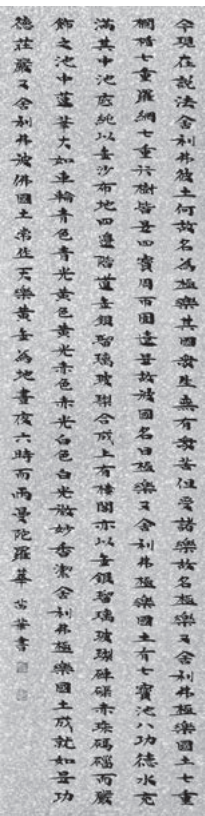 今現在說法舍利弗彼土何故名為極樂其國眾生無有眾苦但受諸樂故名極樂又舍利弗極樂國土七重
欄楯七重羅網七重行樹皆是四寶周帀圍遶是故彼國名曰極樂又舍利弗極樂國土有七寶池八功德水充
滿其中池底純以金沙布地四邊階道金銀瑠璃玻瓈合成上有樓閣亦以金銀瑠璃玻瓈硨磲赤珠碼碯而嚴
飾之池中蓮華大如車輪青色青光黃色黃光赤色赤光白色白光微妙香潔舍利弗極樂國土成就如是功
德莊嚴又舍利弗彼佛國土常作天樂黃金為地晝夜六時而雨曼陀羅華 華書